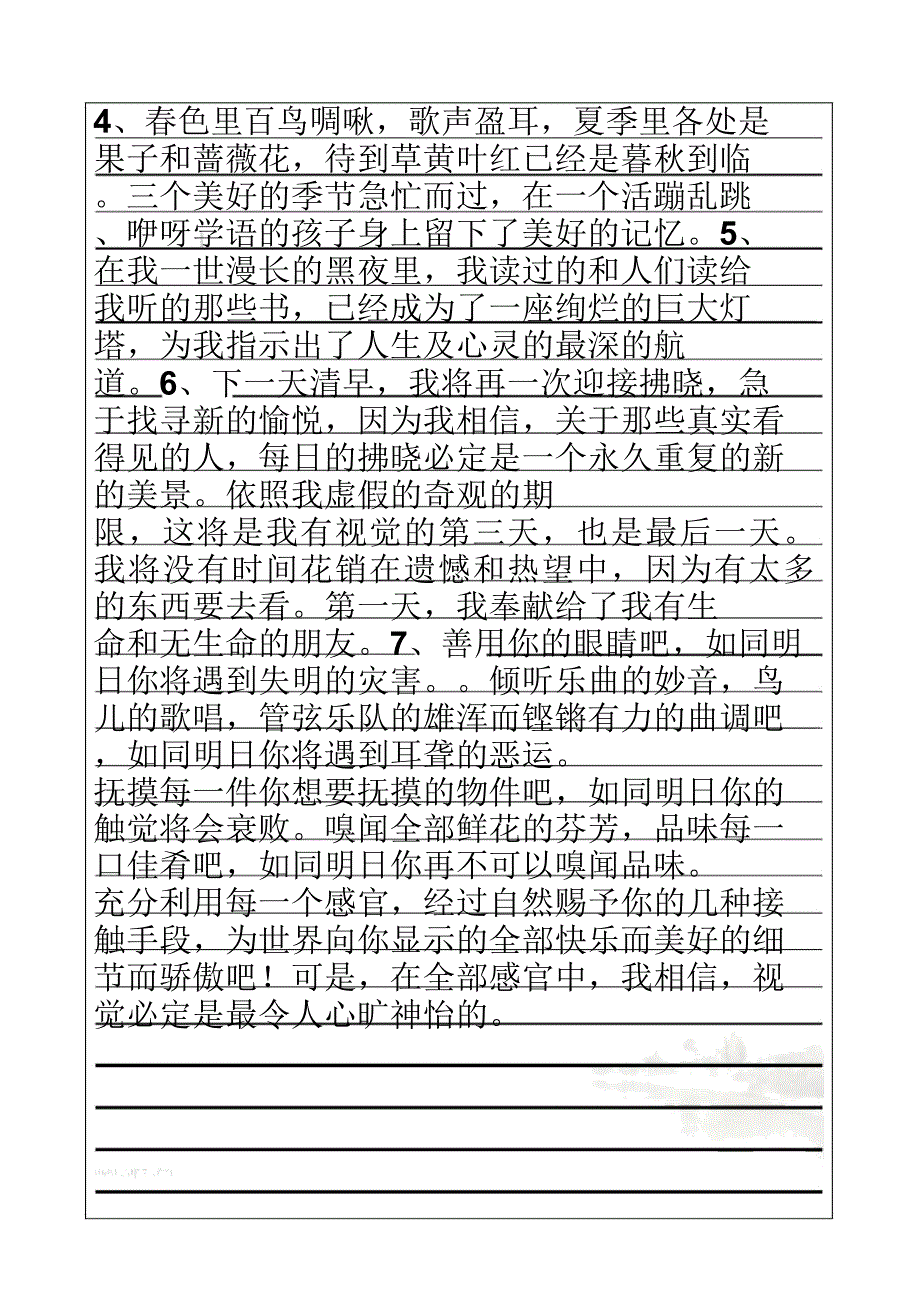 4、春色里百鸟啁啾，歌声盈耳，夏季里各处是
果子和蔷薇花，待到草黄叶红已经是暮秋到临
。三个美好的季节急忙而过，在一个活蹦乱跳
、咿呀学语的孩子身上留下了美好的记忆。5、
在我一世漫长的黑夜里，我读过的和人们读给
我听的那些书，已经成为了一座绚烂的巨大灯
塔，为我指示出了人生及心灵的最深的航
道。6、下一天清早，我将再一次迎接拂晓，急
于找寻新的愉悦，因为我相信，关于那些真实看
得见的人，每日的拂晓必定是一个永久重复的新
的美景。依照我虚假的奇观的期
限，这将是我有视觉的第三天，也是最后一天。
我将没有时间花销在遗憾和热望中，因为有太多
的东西要去看。第一天，我奉献给了我有生
命和无生命的朋友。7、善用你的眼睛吧，如同明
日你将遇到失明的灾害。。倾听乐曲的妙音，鸟
儿的歌唱，管弦乐队的雄浑而铿锵有力的曲调吧
，如同明日你将遇到耳聋的恶运。
抚摸每一件你想要抚摸的物件吧，如同明日你的
触觉将会衰败。嗅闻全部鲜花的芬芳，品味每一
口佳肴吧，如同明日你再不可以嗅闻品味。
充分利用每一个感官，经过自然赐予你的几种接
触手段，为世界向你显示的全部快乐而美好的细
节而骄傲吧！可是，在全部感官中，我相信，视
觉必定是最令人心旷神怡的。